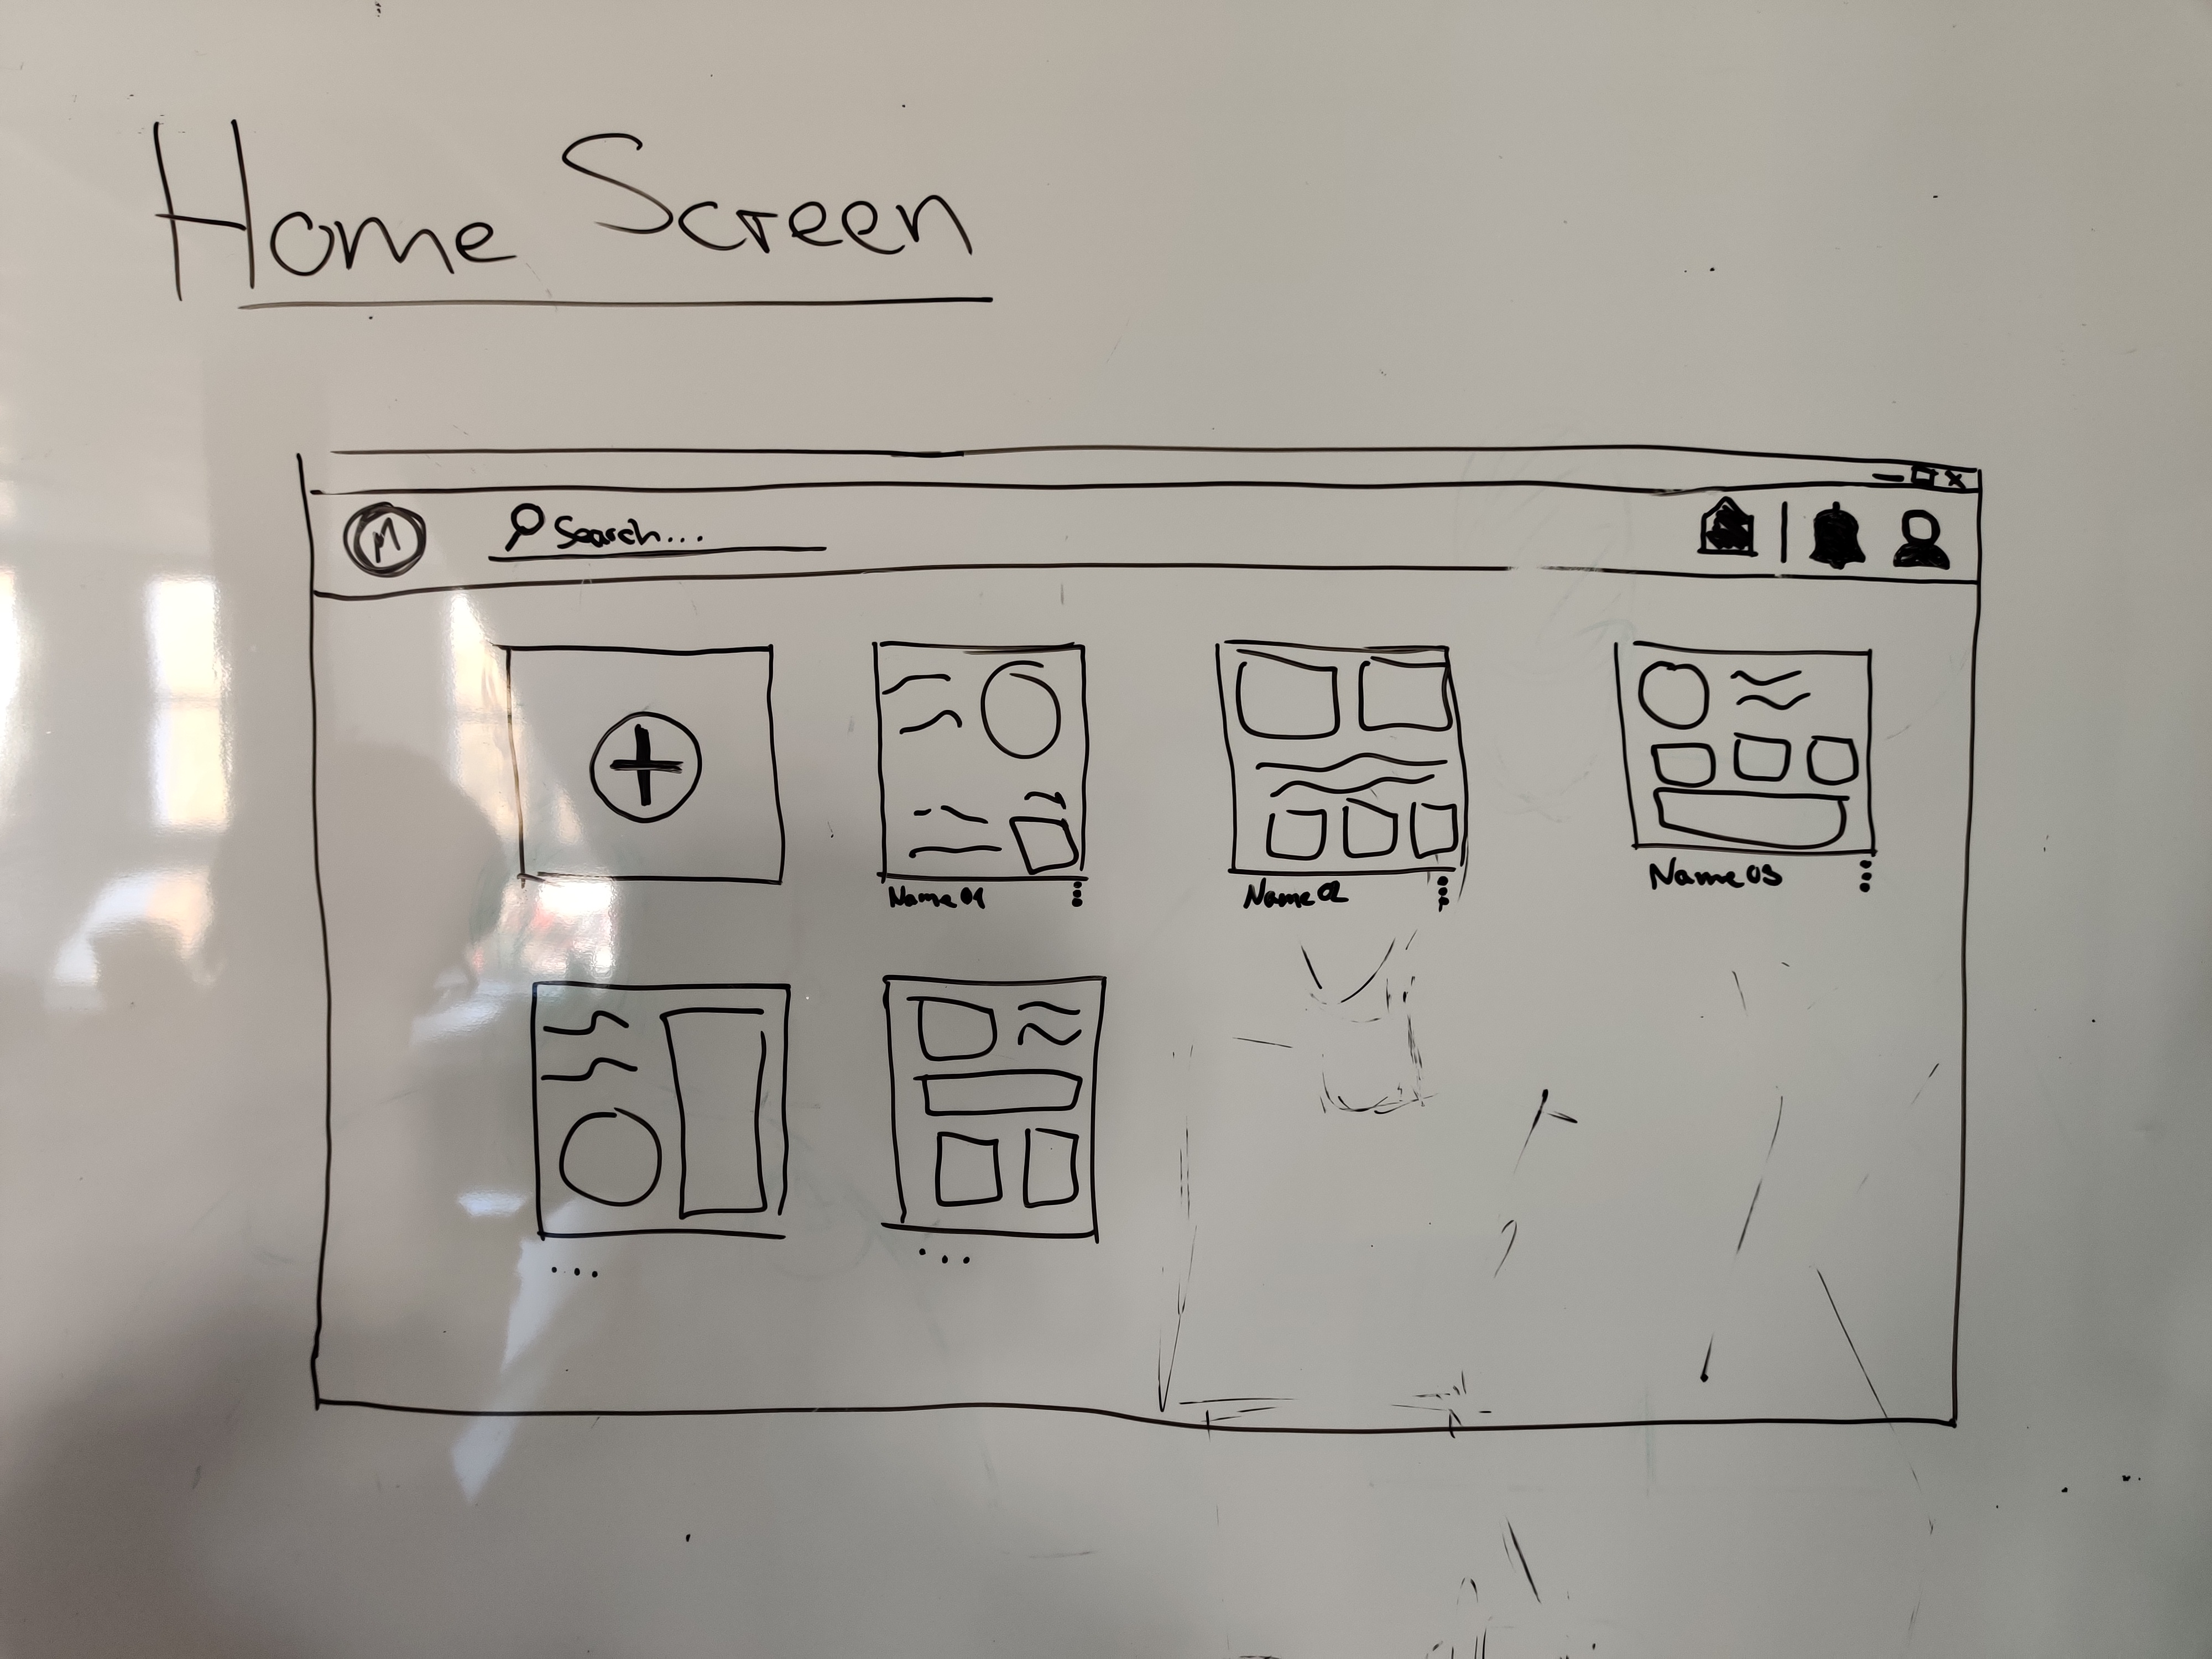 Home Screen
M
Search...
Name 01
Name 02
Name 03
...
...